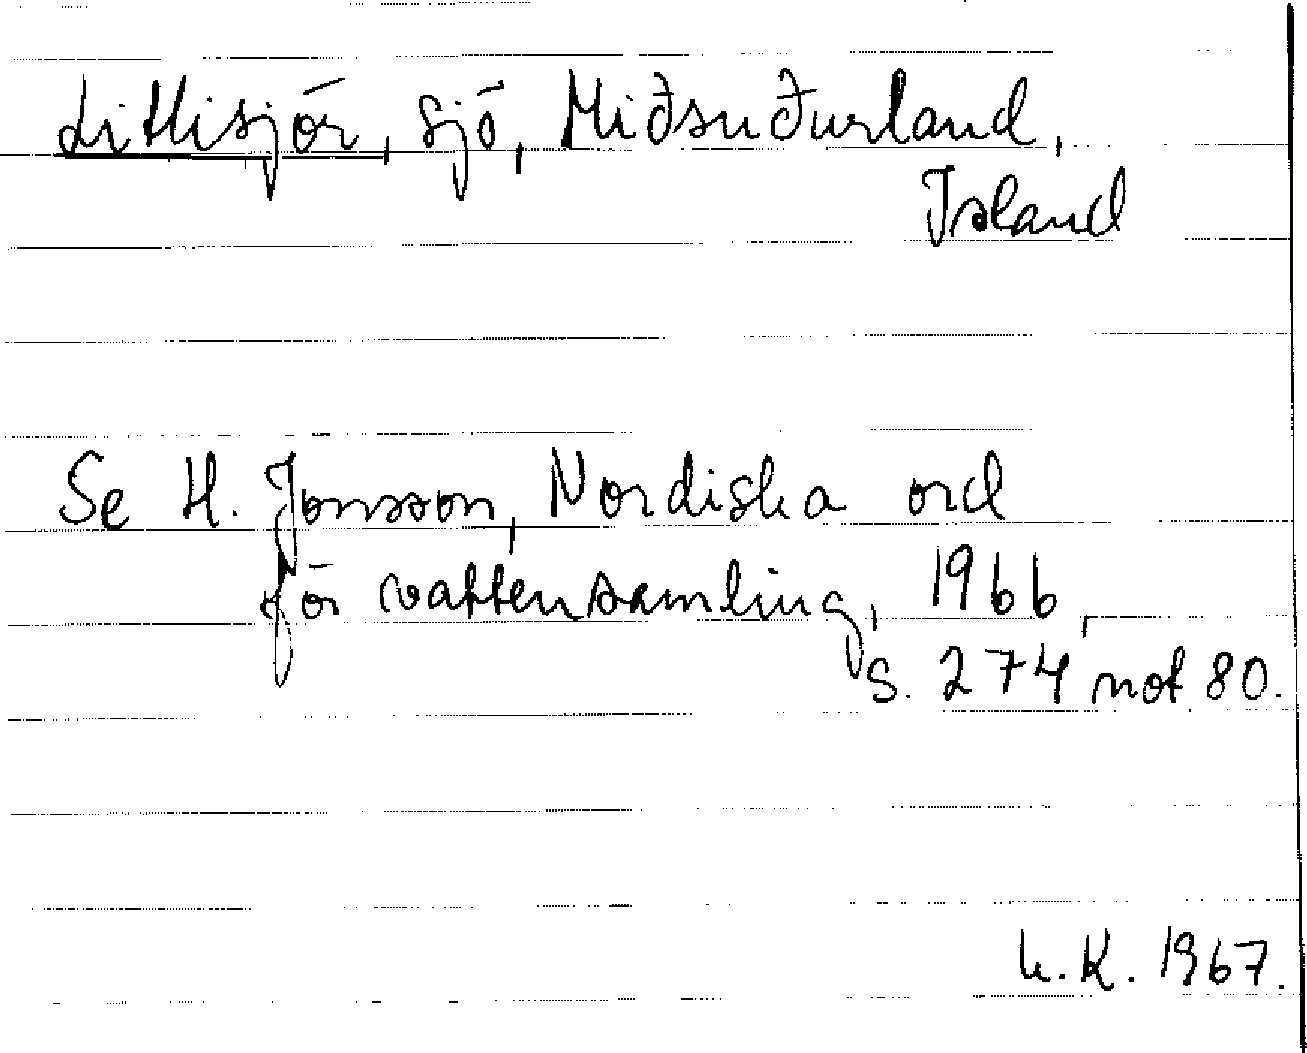 Litlisjór, sjö, Miðsuðurland,
Island
Se H. Jonsson, Nordiska ord
för vattensamling, 1966,
s. 274 not 80.
K. 1967.